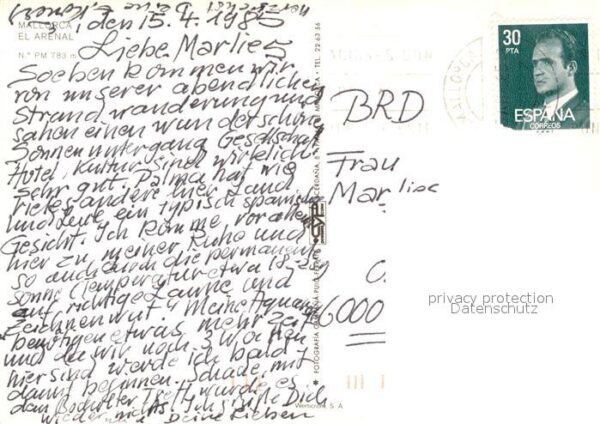 MALLORCA
EL ARENAL
N.º PM 783
, den 15.4.1985
Liebe Marlies
Soeben kommen wir
von unserer abendlichen
Strandwanderung und
sahen einen wunderschönen
Sonnenuntergang Gesellschaft
Hotel, Kultur sind wirklich
sehr gut. Palma hat wie
vieles andere hier Land
und Leute ein typisch spanisches
Gesicht. Ich komme, vor allem
hier zu meiner Ruhe und
so auch durch die permanente
Sonne (Temperatur etwa 18-20
auf richtige Laune und
Zeichnenwut. Meine Aquarelle
benötigen etwas mehr Zeit
und da wir noch 3 Wochen
hier sind werde ich bald
damit beginnen. Schade, mit
dem Bocholter Treff wurde es
wieder nichts. Ich grüße Dich
Deine
BRD
Frau
Marlies
6000
30
PTA
ESPAÑA
CORREOS
MALLORCA
TEL. 22 63 36
privacy protection
Datenschutz